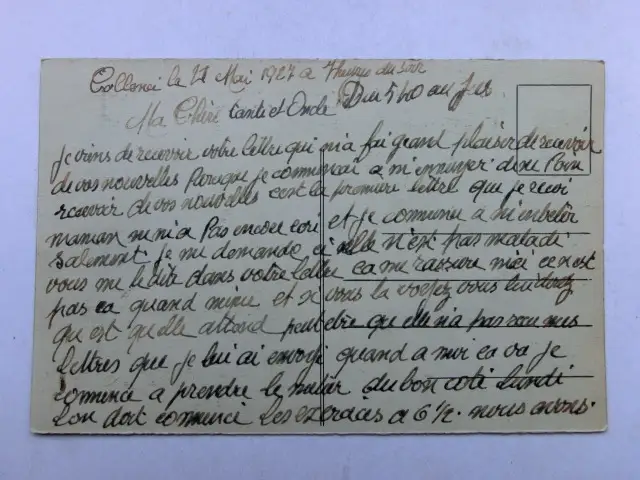 le 21 Mai 1927 a 7 heures du soir
Ma Chère tante et Oncle Du 540 au Jus
Je viens de recevoir votre lettre qui m'a fai grand plaisir de recevoir
de vos nouvelles Parceque je commencai a m'ennuyer de ne Pas
recevoir de vos nouvelles c'est la premiere lettre que je recoi
maman ne m'a Pas encore ecri et je commence a m'embeter
salement je me demande si elle n'est pas malade
vous me le dite dans votre lettre ca me rassure mieu ce n'est
pas ca quand meme et si vous la voyez vous lui direz
qu est qu'elle attend peut etre que elle n'a pas recu mes
lettres que je lui ai envoyé quand a moi ca va je
commence a prendre le metier du bon coté Lundi
l'on doit commencé Les exercices a 6 ½. nous avons.